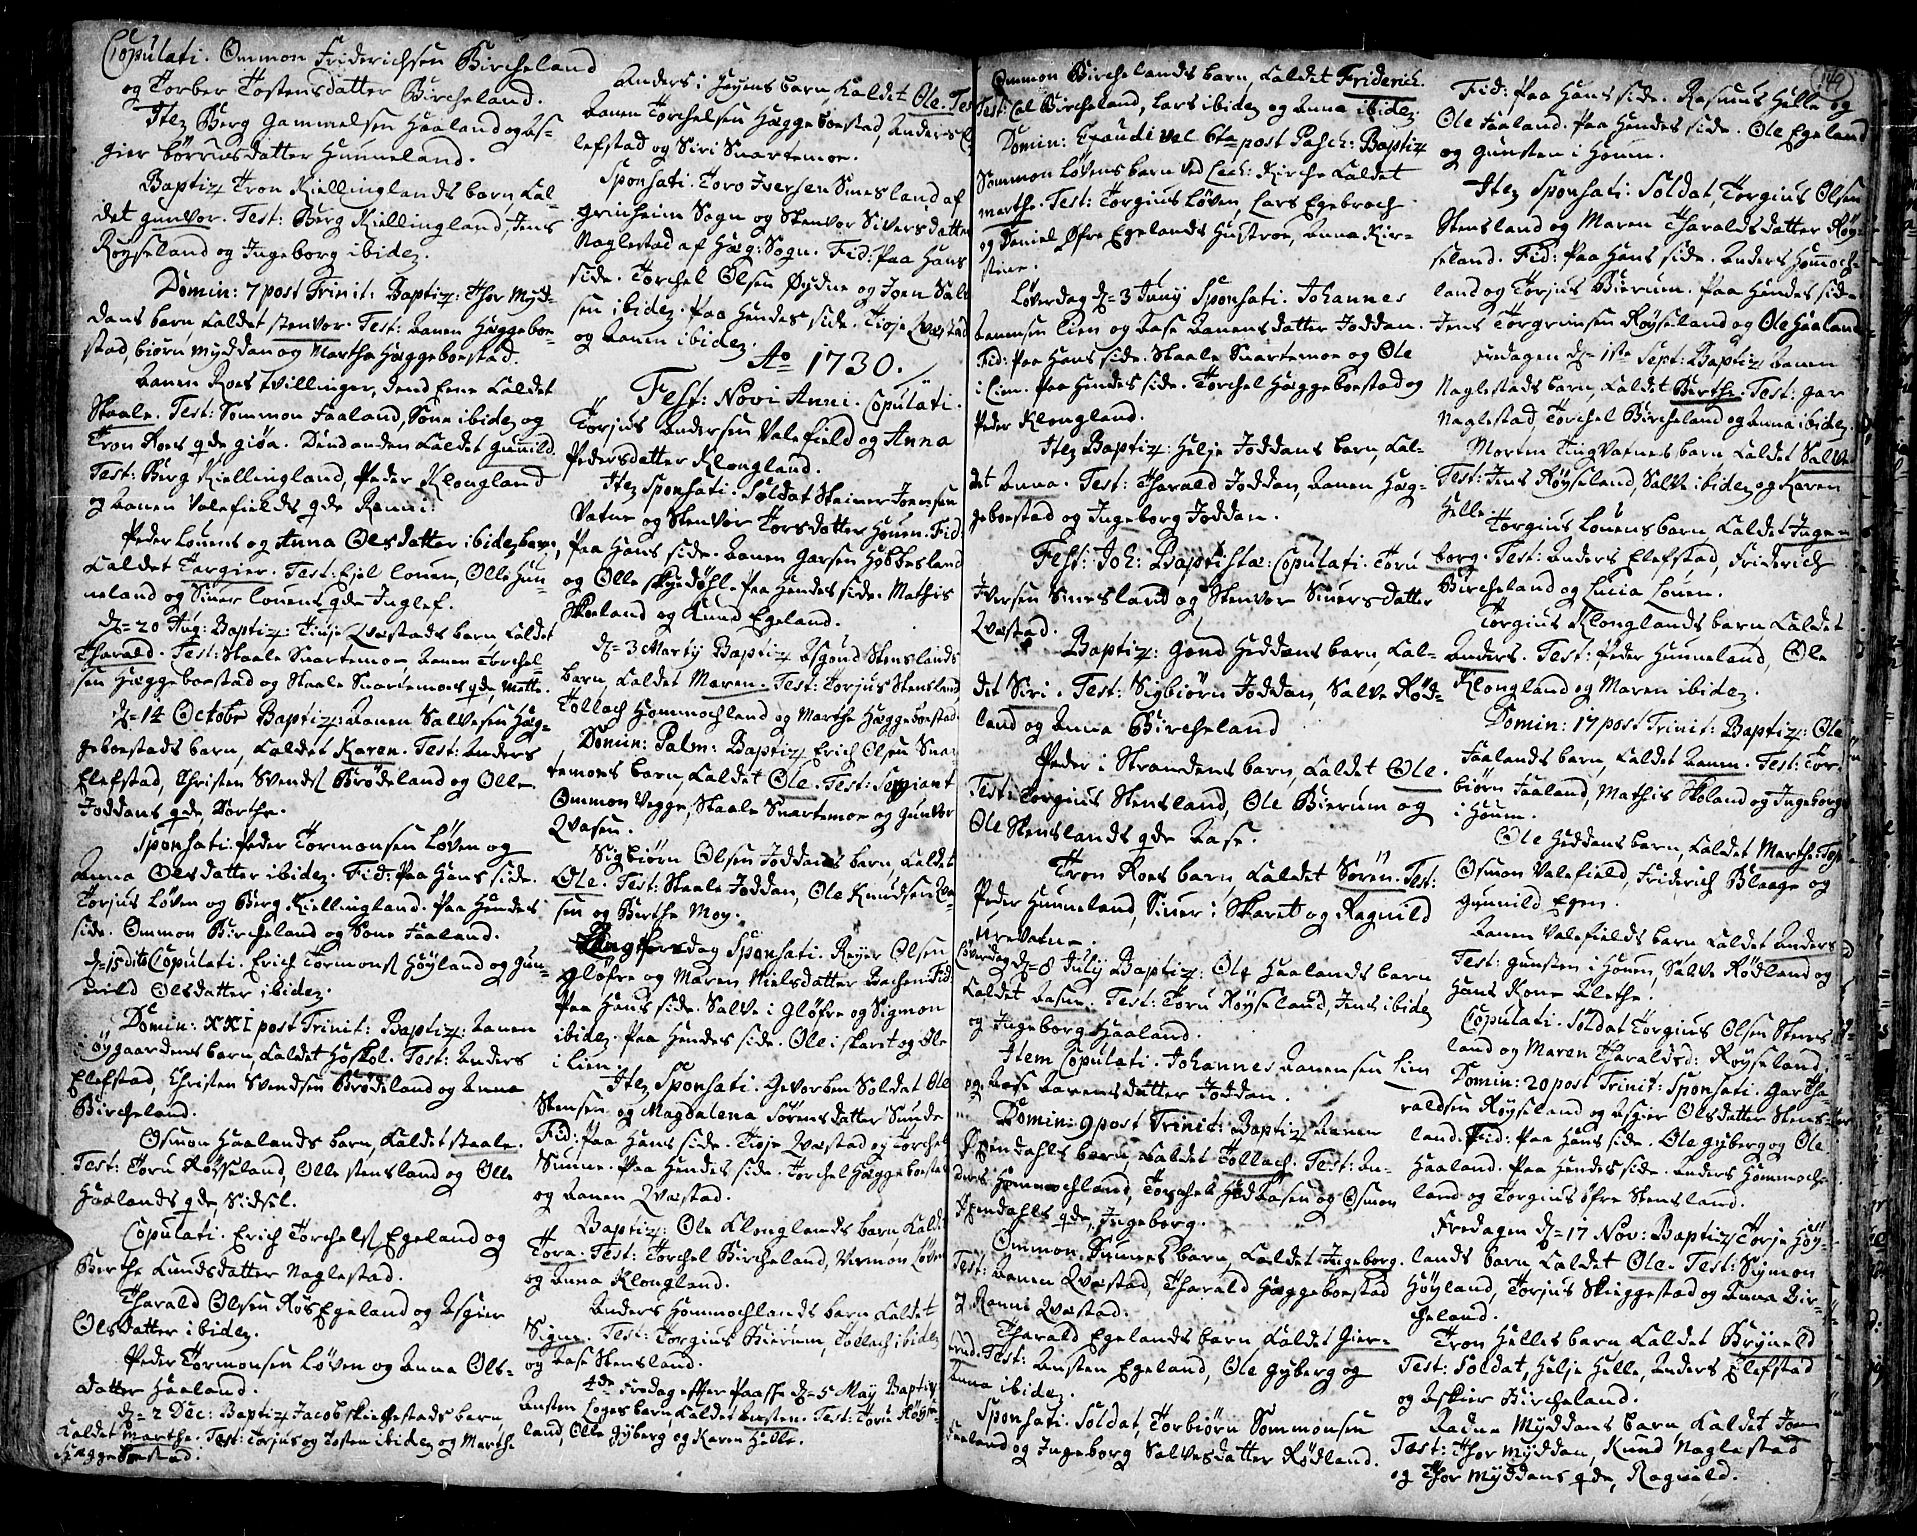 Copulati. Ommon Friderichsen Bircheland
og Torber Tostensdatter Bircheland.
Itez Berg Gammelsen Haaland og As-
gier Børrusdatter Hunneland.
Baptiz Tron Kiellinglands barn Cal-
det Gunvor. Test: Berg Kiellingland, Jens
Røyseland og Ingeborg ibidez.
Domin: 7 post Trinit: Baptiz: Thor Myd-
dans barn Caldet Stenvor. Test: Aanen Heggeboe-
stad, biørn Myddan og Martha Heggeboestad.
Aanen Roes tvillinger, dend Eene Caldet
Staale. Test: Sommon Faaland, Sone ibidez og
Tron Roes qde giøa. Dend anden Caldet Gunild.
Test: Berg Kiellingland, Peder Klongland
og Aanen Valefields qde Renni.
Peder Louens og Anna Olsdatter ibidez barn,
Caldet Targier. Test: Ejel Louen, Olle Hun-
neland og Siner Louens qde Inglef.
d= 20 Aug: Baptiz: Tioje Qvæstads barn Caldet
Tharald. Test: Staale Snartemoe, Aanen Torchel-
sen Heggeboestad og Staale Snartemoes qde, Matte.
d= 14 Octobr Baptiz: Aanen Salvesen Heg-
geboestads barn, Caldet Karen. Test: Anders
Elefstad, Christen Svends Brødeland og Olle
Joddans qde Dorthe.
Sponsati. Peder Tormonsen Løven og
Anna Olsdatter ibidez. Fid: paa Hans side.
Torjus Løven og Berg Kiellingland. Paa Hendes
side. Ommon Bircheland og Sone Faaland.
d= 15 dito Copulati. Erich Tormonst Høyland og Gun-
uild Olsdatter ibidez.
Domin: XXI post Trinit: Baptiz: Aanen
Øygaardens barn, Caldet Hoskol. Test: Anders
Elefstad, Christen Svendsen Brødeland og Anna
Bircheland.
Osmon Haalands barn, Caldet Staale.
Test: Toru Røyseland, Olle Stensland og Olle
Haalands qde, Sidsel.
Copulati. Erich Torchelst Egeland og
Berthe Lundsdatter Naglestad.
Tharald Olsen Røs Egeland og Asgier
Olsdatter ibidez.
Peder Tormonsen Løven og Anna Ols-
datter Haaland.
d= 2 Dec: Baptiz Jacob Skieggestads barn,
Caldet Marthe. Test: Torjus og Tosten ibidez og Marthe
Heggeboestad.
Anders i Høyens barn, Caldet Ole. Test
Aanen Torchelsen Heggeboestad, Anders E-
lefstad og Siri Snartemoe.
Sponsati. Toro Iversen Smesland af
Grinheim Sogn og Stenvor Siversdatter
Naglestad af Heg: Sogn. Fid: Paa Hans
side. Torchel Olsen Øydne og Joen Salv
sen ibidez. Paa Hendes side. Tioje Qvæstad
og Aanen ibidez.
Ao 1730.
Fest: Novi Anni. Copulati.
Torjus Andersen Valefield og Anna
Pedersdatter Klongland.
Itez Sponsati. Soldat Steiner Joensen
Vatne og Stenvor Torsdatter Houen. Fid:
Paa Hans side. Aanen Garsen Hobbesland
og Olle Skyedøhl. Paa Hendes side. Mathis
Skoeland og Aund Egeland.
d= 3 Martij Baptiz Asgoud Stenslands
barn, Caldet Maren. Test: Torjus Stensland
Tollach Hommochland og Marthe Heggeboestad
Domin: Palm: Baptiz Erich Olsen Snar
temoes barn, Caldet Ole. Test: Sergiant
Ommon Vegge, Staale Snartemoe og Gunvor
Qvasen.
Sigbiørn Olsen Joddans barn, Caldet
Ole. Test: Staale Joddan, Ole Knudsen Qva-
sen og Berthe Moy.
Langfredag Sponsati. Rejer Olsen
Gløfre og Maren Nielsdatter Bachen Fid
Paa Hans side. Salve i Gløfre og Sigmon
ibidez. Paa Hendes side. Ole i Skaret og Ole
i Lien.
Itez Sponsati. Gevorben Soldat Ole
Stensen og Magdalena Sørensdatter Sunde
Fid: Paa Hans side. Tioje Qvæstad og Torchel
Sunne. Paa Hendes side. Torchel Heggeboestad
og Aanen Qvæstad.
Baptiz: Ole Klonglands barn Caldet
Tora. Test: Torchel Bircheland, Vermon Løven
og Anna Klongland.
Anders Hommochlands barn Caldet
Signe. Test: Torgius Bierum, Tollach ibidez
og Aase Stensland.
4de Fredag efter Paasche d= 5 May Baptiz
Austen Loges barn Caldet Austen. Test: Toru Røyse-
land, Olle Gyberg og Karen Helle.
Ommon Birchelands barn, Caldet Friderich.
Test: Cal Bircheland, Lars ibidez og Anna ibidez
Domin: Exaudi vel 6ta post Pasch: Baptiz
Sommon Løvens barn ved Lech: Kirche Caldet
Marthe. Test: Torgius Løven, Lars Egebroch
og Daniel Øfre Egelands Hustroe, Anna Kir-
stine.
Løverdag d= 3 Junij Sponsati. Johannes
Aanensen Lien og Aase Aanensdatter Joddan.
Fid: Paa Hans side. Staale Snartemoe og Ole
i Lien. Paa Hendes side. Torchel Heggeboestad og
Peder Klongland.
Itez Baptiz: Helje Joddans barn, Cal-
det Anna. Test: Tharald Joddan, Aanen Heg-
geboestad og Ingeborg Joddan.
Fest: Joh: Baptistæ: Copulati. Toru
Iversen Smesland og Stenvor Siversdatter
Qvæstad.
Baptiz: Gond Heddans barn, Cal-
det Siri. Test: Sigbiørn Joddan, Salve Rød-
land og Anna Bircheland
Peder i Strandens barn, Caldet Ole.
Test: Torgius Stensland, Ole Bierum og
Ole Stenslands qde Aase.
Tron Roes barn Caldet Sørén. Test:
Peder Hunneland, Siner i Skaret og Ragnild
Urevatne.
Løverdag d= 8 Julij Baptiz: Ole Haalands barn
Caldet Aasne. Test: Toru Røyseland, Jens ibidez
og Ingeborg Haaland.
Item Copulati. Johannes Aanensen Lien
og Aase Aanensdatter Joddan.
Domin: 9 post Trinit: Baptiz Aanen
Espendahls barn, Caldet Tollach. Test: An-
ders Hommochland, Torchel Høddasen og Osmon
Espendahls qde, Ingeborg.
Ommon Sunnes barn, Caldet Ingeborg.
Test: Aanen Qvæstad, Tharald Heggeboestad
og Ranni Qvæstad.
Tharald Egelands barn Caldet Gier-
trud. Test: Austen Egeland, Ole Gyberg og
Anna ibidez.
Sponsati. Soldat, Torbiørn Sommonsen
Faaland og Ingeborg Salvesdatter Rødland.
140
Fid: Paa Hans side. Rasmus Helle og
Ole Faaland. Paa Hendes side. Ole Egeland
og Gunsten i Houen.
Itez Sponsati. Soldat, Torgius Olsen
Stensland og Maren Tharaldsdatter Røy-
seland. Fid: Paa Hans side. Anders Homoch-
land og Torjus Bierum. Paa Hendes side
Jens Torgrimsen Røyseland og Ole Haaland.
Fredagen d= 1ste Sept: Baptiz Aanen
Naglestads barn, Caldet Berthe. Test: Gar
Naglestad, Torchel Bircheland og Anna ibidez.
Morten Tingvatnes barn Caldet Salve
Test: Jens Røyseland, Salve ibidez og Karen
Helle.
Torgius Louens barn, Caldet Inge-
borg. Test: Anders Elefstad, Friderich
Bircheland og Lucia Løven.
Torgius Klonglands barn Caldet
Anders. Test: Peder Hunneland, Ole
Klongland og Maren ibidez.
Domin: 17 post Trinit: Baptiz: Ole
Faalands barn, Caldet Aanen. Test: Tor-
biørn Faaland, Mathis Skoland og Ingeborg
i Houen.
Ole Heddans barn, Caldet Marthe. Test
Osmon Valefield, Friderich Blaage og
Gunnild Egen.
Aanen Valefields barn Caldet Anders
Test: Gunsten i Houen, Salve Rødland og
Hans Kone Alethe.
Copulati. Soldat Torgius Olsen Stens
land og Maren Tharaldsd: Røyseland
Domin: 20 post Trinit: Sponsati. Gar Tha-
raldsen Røyseland og Asgier Olsdatter Stens-
land. Fid: Paa Hans side. Ole Gyberg og Ole
Haaland. Paa Hendes side. Anders Hommoch-
land og Torgius Øfre Stensland.
Fredagen d= 17 Nov: Baptiz Torje Høy-
lands barn, Caldet Ole. Test: Sigmon
Høyland, Torjus Skieggestad og Anna Bir-
cheland.
Tron Helles barn Caldet Brynild
Test: Soldat, Helje Helle, Anders Elefstad
og Askier Bircheland.
Aadne Myddans barn, Caldet Joen
Test: Thor Myddan, Knud Naglestad
og Thor Myddans qde, Ragnild.